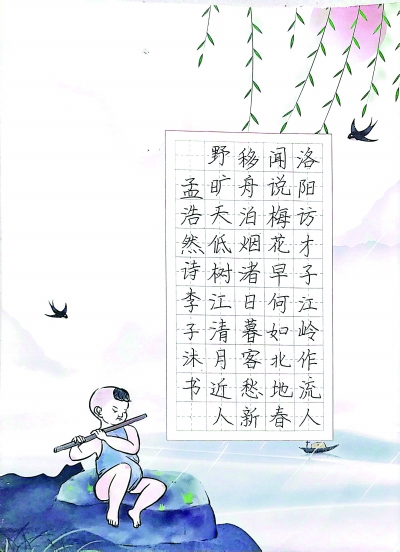 洛阳访才子江岭作流人
闻说梅花早何如北地春
移舟泊烟渚日暮客愁新
野旷天低树江清月近人
孟浩然诗李子沐书